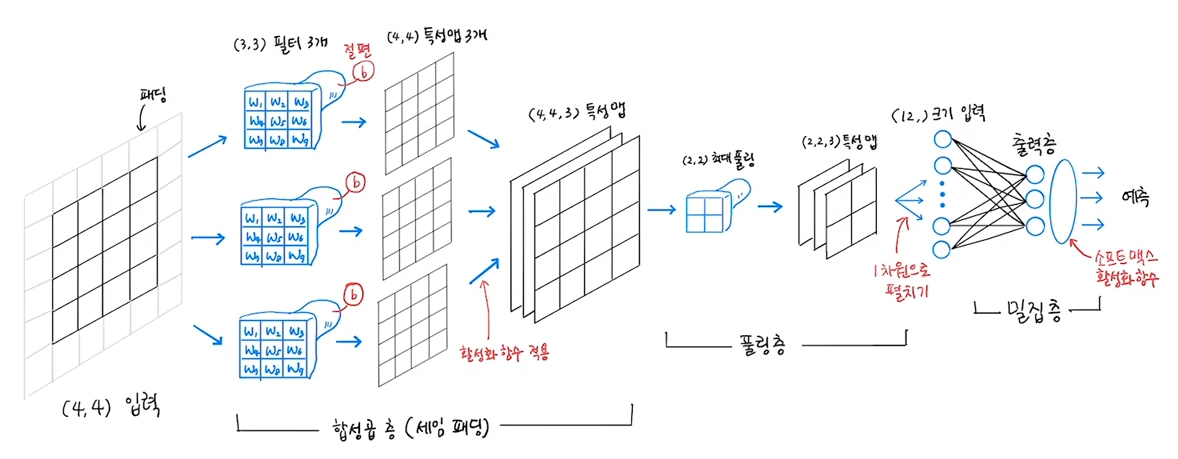 패딩
(4,4) 입력
(3,3) 필터 3개
절편
b
W₁ W₂ W₃
W₄ W₅ W₆
W₇ W₈ W₉
b
W₁ W₂ W₃
W₄ W₅ W₆
W₇ W₈ W₉
b
W₁ W₂ W₃
W₄ W₅ W₆
W₇ W₈ W₉
(4,4) 특성맵 3개
활성화 함수 적용
(4,4,3) 특성맵
합성곱 층 (세임 패딩)
(2,2) 최대 풀링
(2,2,3) 특성맵
풀링층
1차원으로
펼치기
(12,) 크기 입력
출력층
예측
소프트맥스
활성화 함수
밀집층